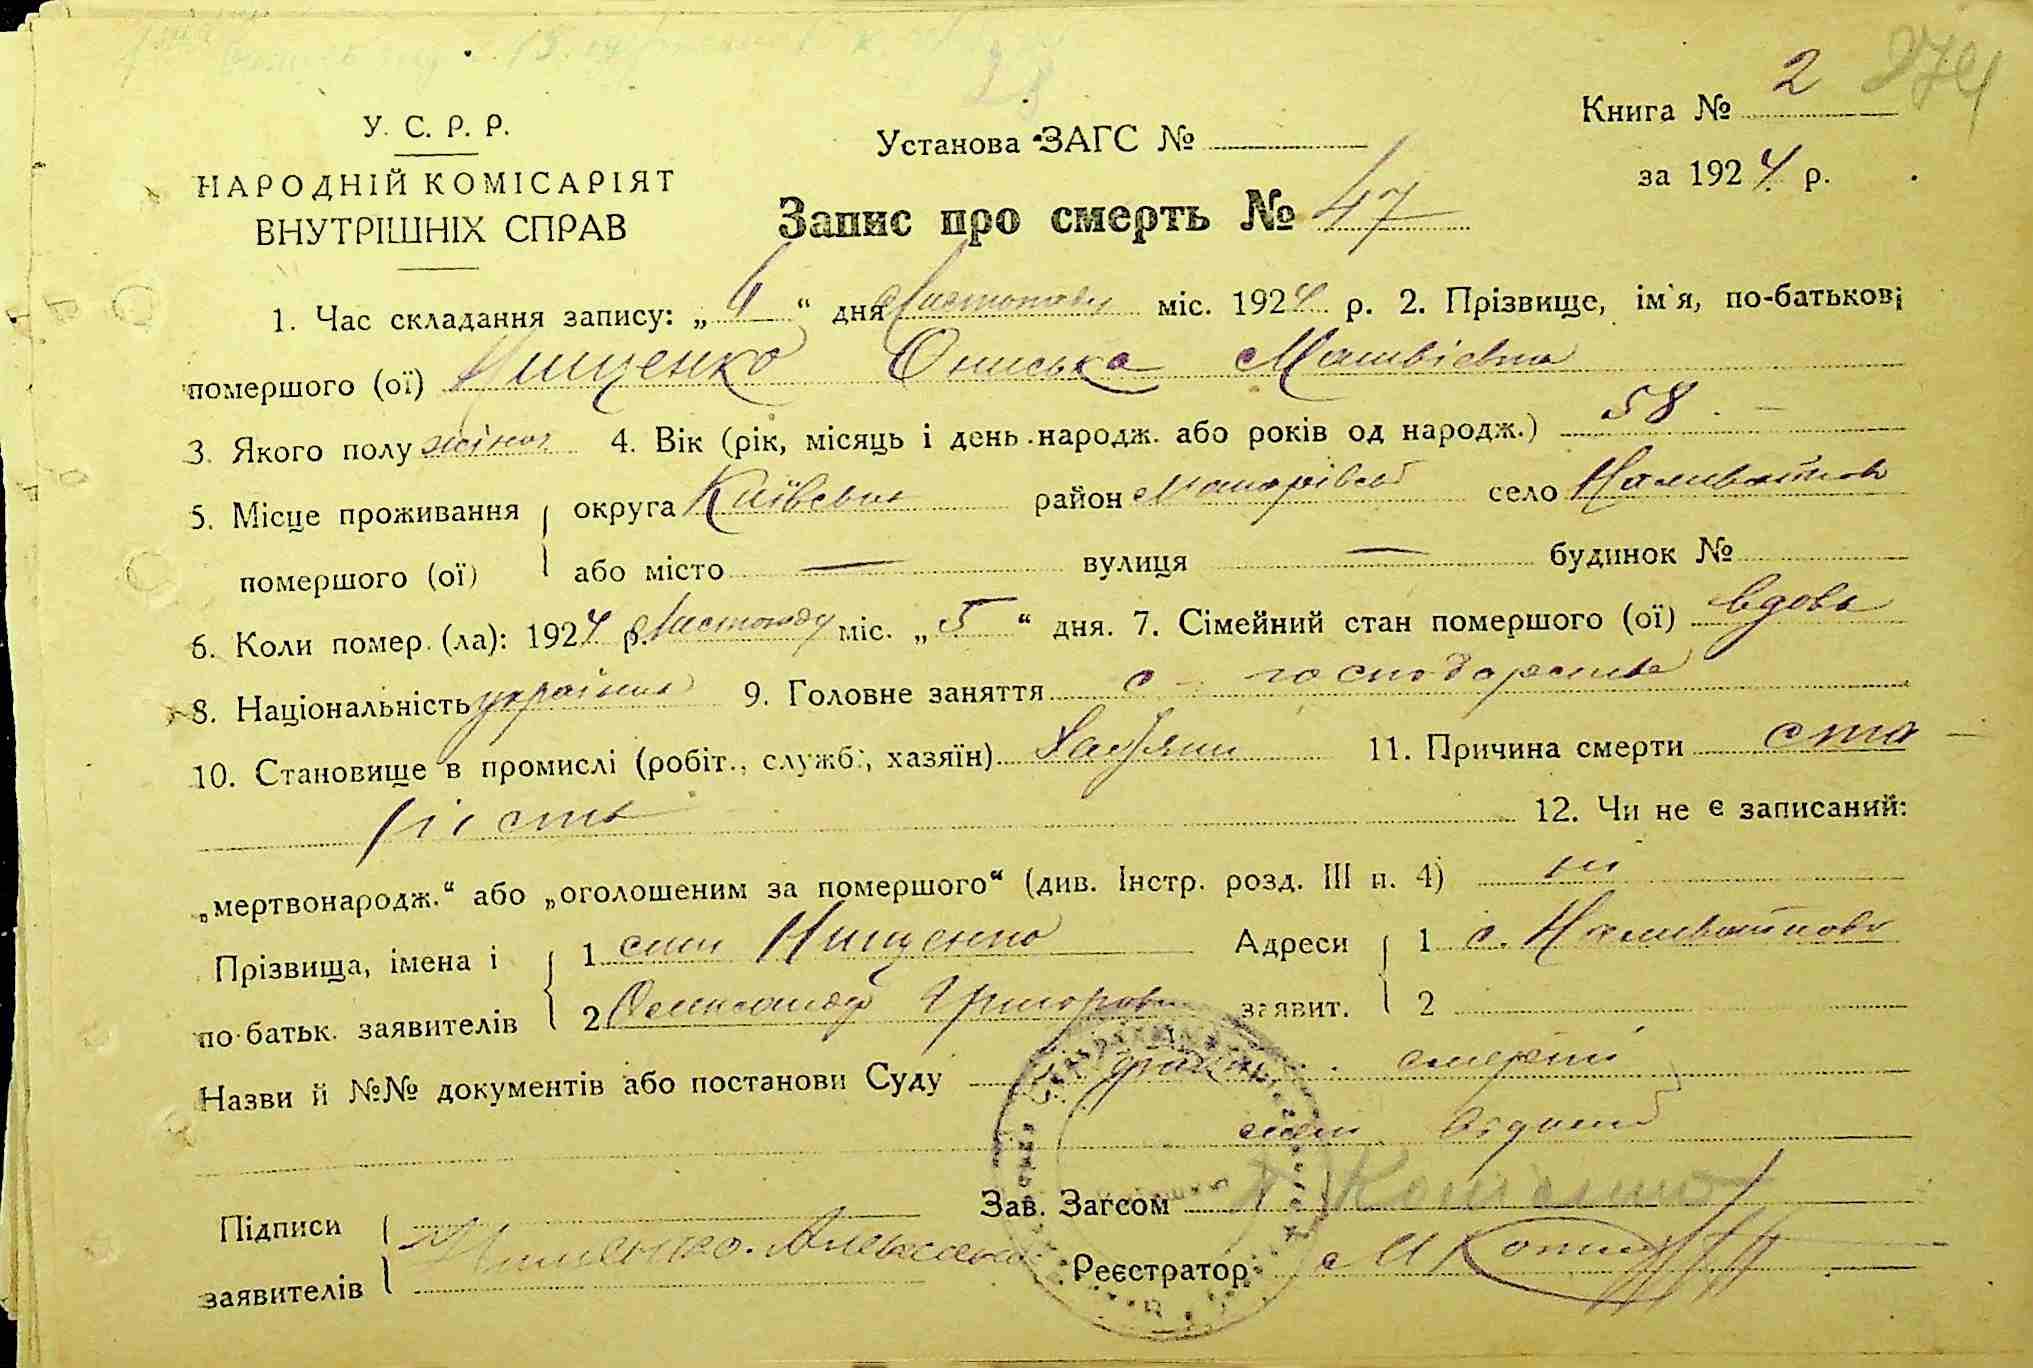 274
Книга № 2
У. С. Р. Р.
Установа ЗАГС №
за 1924 р.
НАРОДНІЙ КОМІСАРІЯТ
ВНУТРІШНІХ СПРАВ
Запис про смерть № 47
1. Час складання запису: „ “ дня Листопаду міс. 1924 р. 2. Прізвище, ім'я, по-батькові
помершого (ої) Нищенко Ониська Матвієвна
3. Якого полу жіноч 4. Вік (рік, місяць і день народж. або років од народж.) 58. —
5. Місце проживання округа Київська район Макарівськ село Наливайков
помершого (ої) або місто — вулиця — будинок №
6. Коли помер. (ла): 1924 р. Листопаду міс. „ 5 “ дня. 7. Сімейний стан помершого (ої) вдова
8. Національність україн 9. Головне заняття с - господарств
10. Становище в промислі (робіт., служб., хазяїн) 11. Причина смерти ста
рість 12. Чи не є записаний:
„мертвонародж.“ або „оголошеним за помершого“ (див. Інстр. розд. III п. 4) ні
Прізвища, імена і 1 син Нищенко Адреси 1 с. Наливайково
по-батьк. заявителів 2 Олександр Григоров заявит. 2
Назви й №№ документів або постанови Суду смерті
Зав. Загсом
Підписи
Нищенко Алексан
заявителів Реєстратор